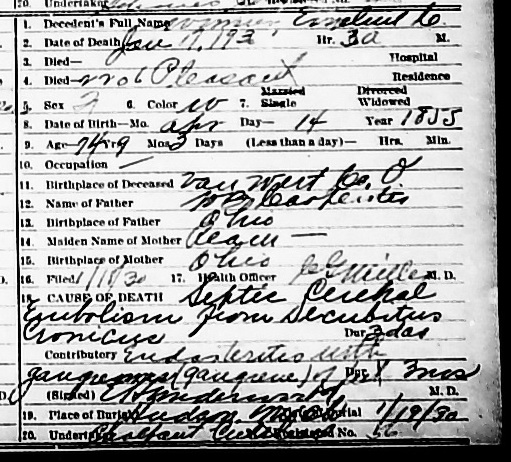 20. Undertaker
1. Decedent's Full Name Emaline L.
2. Date of Death Jan 17, 193 Hr. 3a M.
3. Died— Hospital
4. Died— Mot Pleasant Residence
5. Sex F 6. Color W 7. Married Single Divorced Widowed
8. Date of Birth—Mo. Apr Day— 14 Year 1855
9. Age— 74 Yr 9 Mos 3 Days (Less than a day)— Hrs. Min.
10. Occupation —
11. Birthplace of Deceased Van Wert Co. O
12. Name of Father
13. Birthplace of Father Ohio
14. Maiden Name of Mother —
15. Birthplace of Mother Ohio
16. Filed 1/18/30 17. Health Officer Miller M. D.
18. CAUSE OF DEATH Septic Cerebral
Embolism from Decubitus
Cronicus Dur das
Contributory Endarteritis with
gangrenous (gangrene) of Dur 3mos
(Signed) M. D.
19. Place of Burial Burial 1/19/30
20. Undertaker Chalfant No. 56